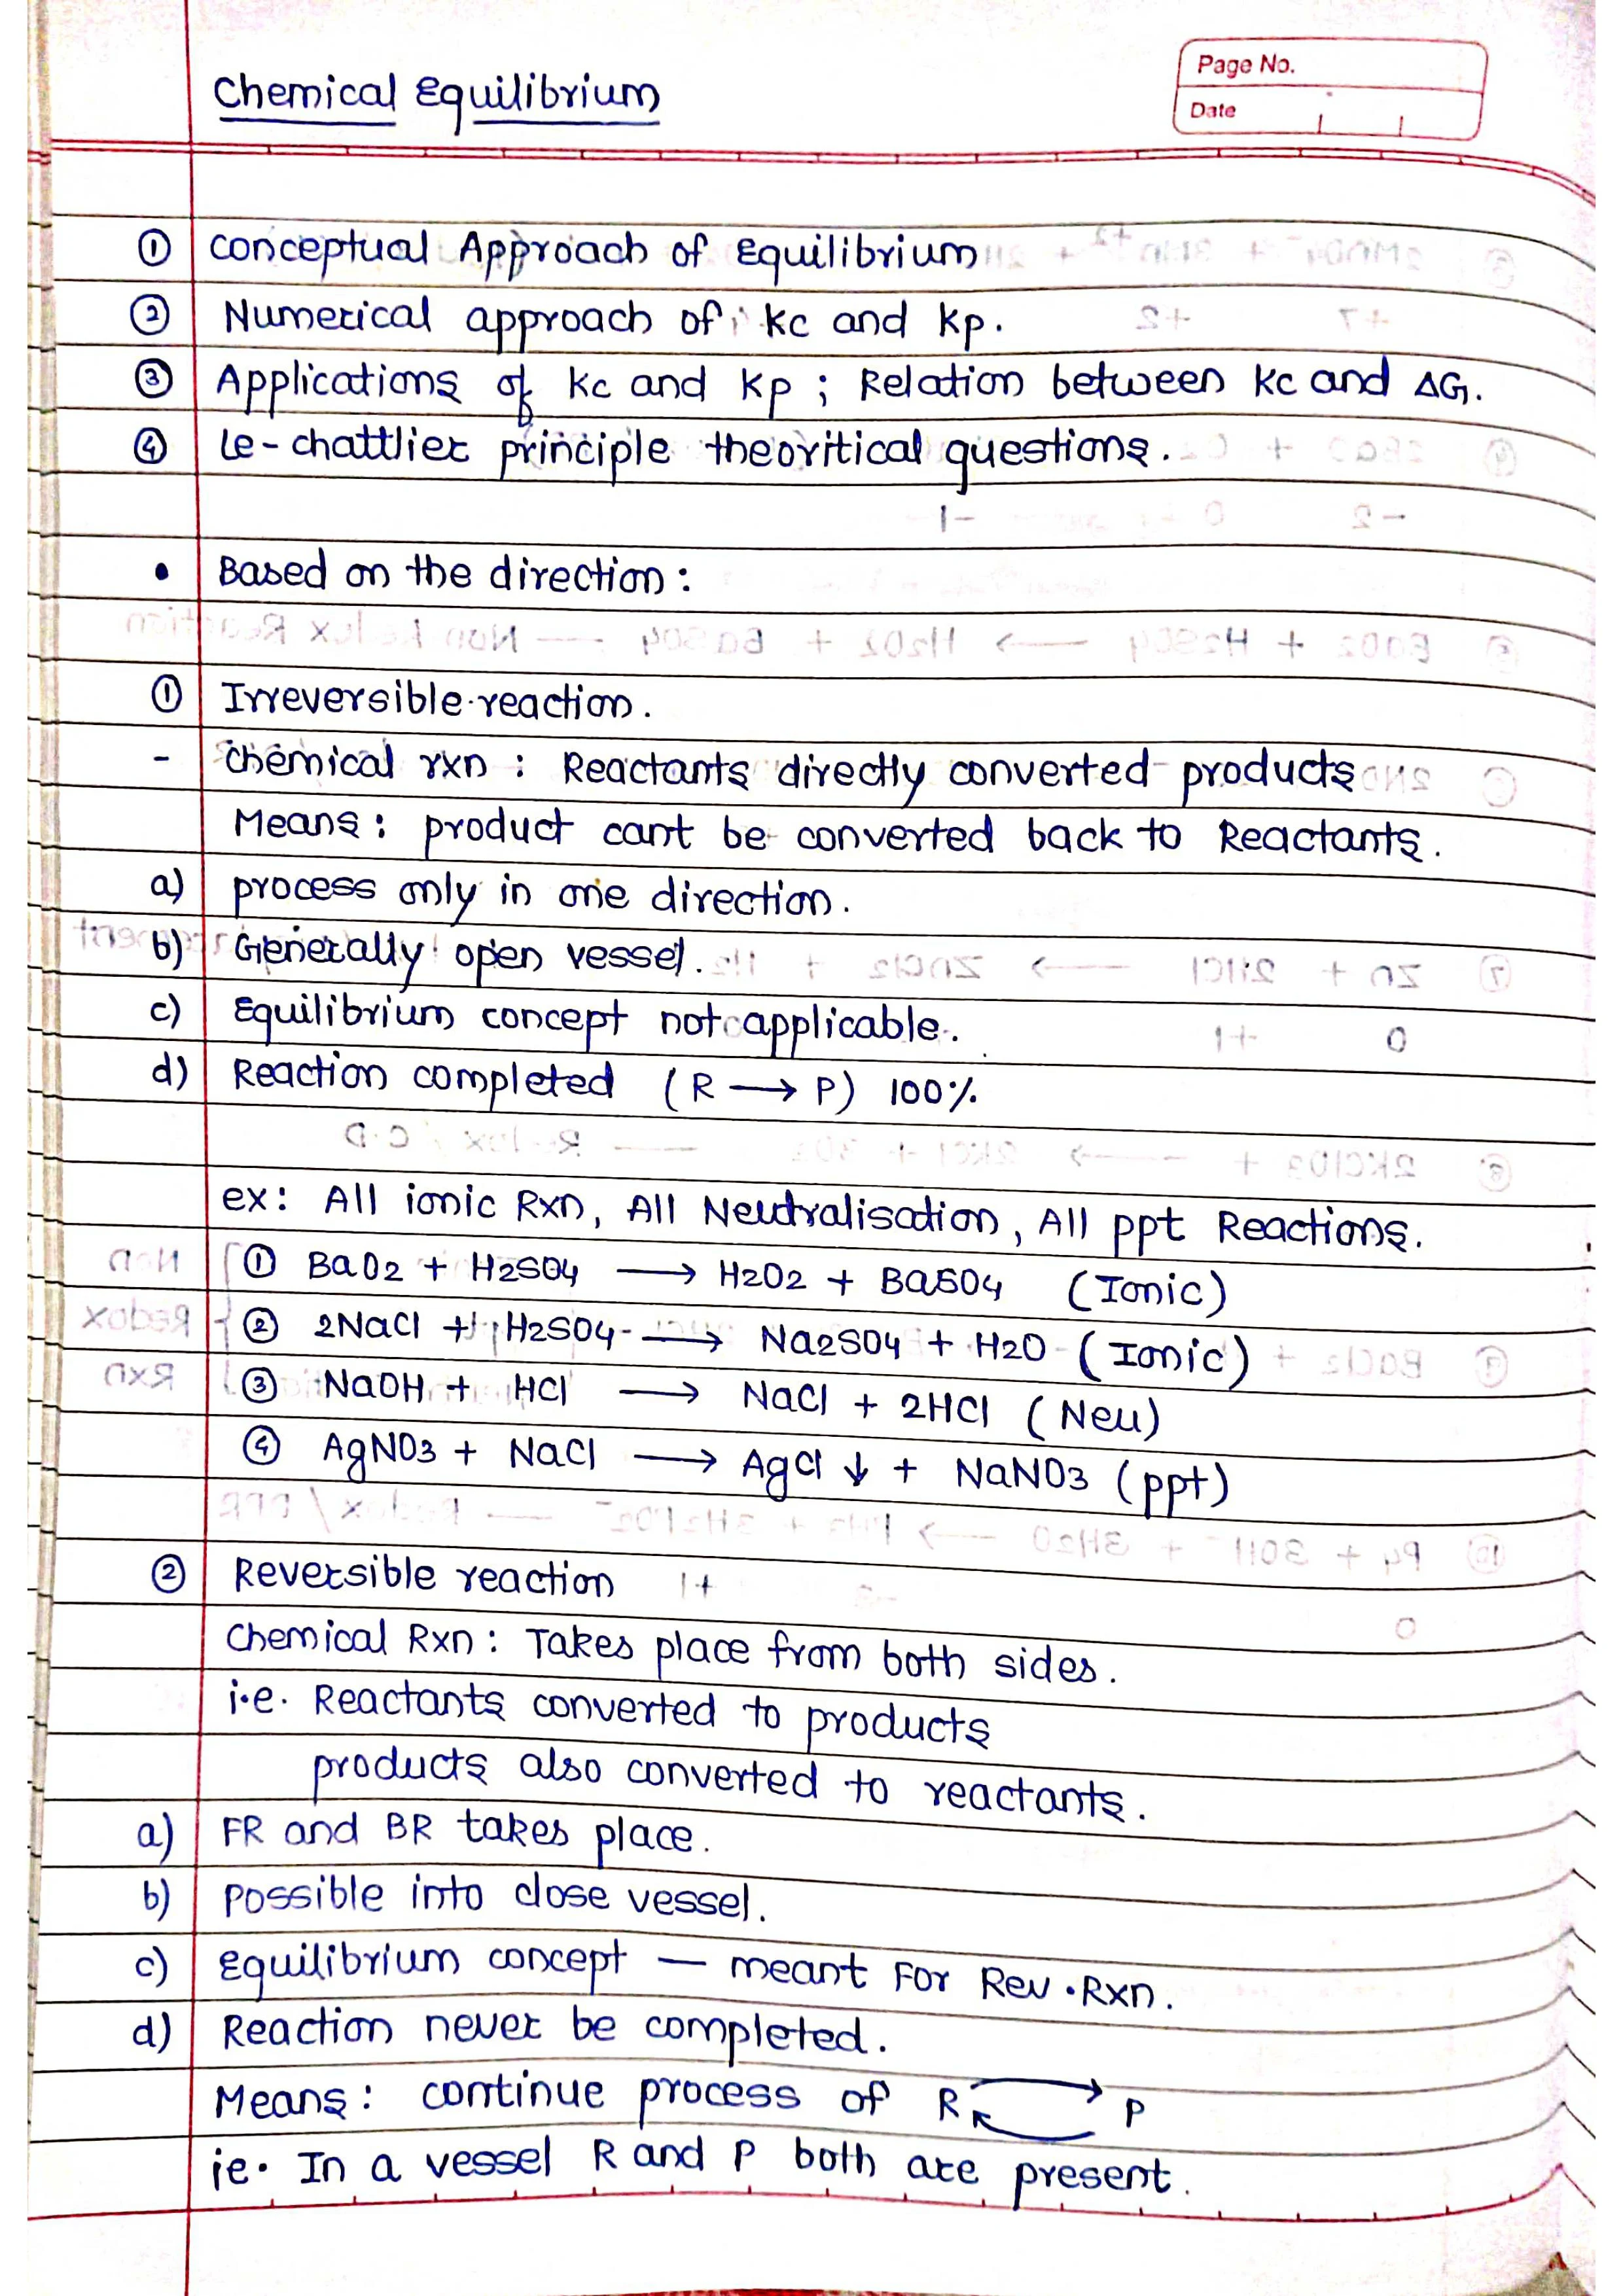 Chemical Equilibrium
Page No.
Date
① Conceptual Approach of Equilibrium
② Numerical approach of Kc and Kp.
③ Applications of Kc and Kp ; Relation between Kc and ΔG.
④ Le-chattlier principle theoritical questions.
• Based on the direction :
① Irreversible reaction.
- Chemical rxn : Reactants directly converted products
Means : product cant be converted back to Reactants.
a) process only in one direction.
b) Generally open vessel.
c) Equilibrium concept not applicable.
d) Reaction completed (R → P) 100%
ex : All ionic Rxn, All Neutralisation, All ppt Reactions.
① BaO2 + H2SO4 → H2O2 + BaSO4 (Ionic)
② 2NaCl + H2SO4 → Na2SO4 + H2O (Ionic)
③ NaOH + HCl → NaCl + 2HCl (Neu)
④ AgNO3 + NaCl → AgCl ↓ + NaNO3 (ppt)
② Reversible reaction
Chemical Rxn : Takes place from both sides.
i.e. Reactants converted to products
products also converted to reactants.
a) FR and BR takes place.
b) Possible into close vessel.
c) Equilibrium concept — meant For Rev. Rxn.
d) Reaction never be completed.
Means : continue process of R ⇌ P
ie. In a vessel R and P both are present.